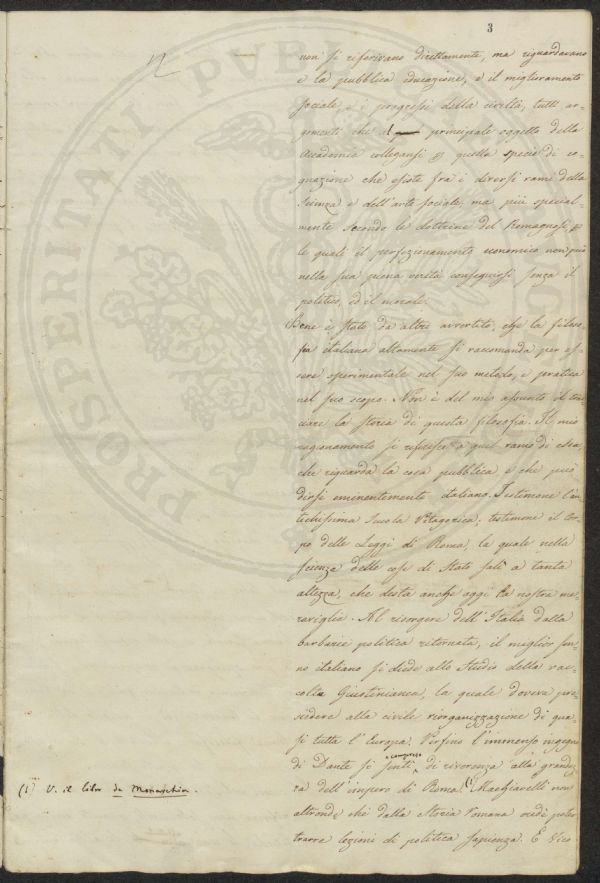 3
non si riferivano direttamente, ma riguardavano
e la pubblica educazione, e il miglioramento
sociale, e i progressi della civiltà, tutti ar-
gomenti che al principale oggetto della
Accademia collegansi p quella specie di co-
gnazione che esiste fra i diversi rami della
Scienza e dell'arte sociale, ma più special-
mente secondo le dottrine del Romagnosi, p
le quali il perfezionamento economico non può
nella sua piena verità conseguirsi senza il
politico, ed il morale.
Bene è stato da altri avvertito, che la filoso-
fia italiana altamente si raccomanda per es-
sere sperimentale nel suo metodo, e pratica
nel suo scopo. Non è del mio assunto il trac-
ciare la storia di questa filosofia. Il mio
ragionamento si riferisce a quel ramo di essa
che riguarda la cosa pubblica e che può
dirsi eminentemente italiano. Testimone l'an-
tichissima Scuola Pitagorica; testimone il cor-
po delle Leggi di Roma, la quale nella
scienza delle cose di Stato salì a tanta
altezza, che desta anche oggi la nostra me-
raviglia. Al risorgere dell'Italia dalla
barbarie politica ritornata, il miglior sen-
no italiano si diede allo Studio della rac-
colta Giustinianea, la quale doveva pre-
siedere alla civile riorganizzazione di qua-
si tutta l'Europa. Perfino l'immenso ingegno
di Dante si sentì compreso di riverenza alla grandez-
za dell'impero di Roma (1). Machiavelli non
altronde che dalla Storia romana credè poter
trarre lezioni di politica sapienza. E Vico
(1) V. il libro de Monarchia.
PROSPERITATI PVBL